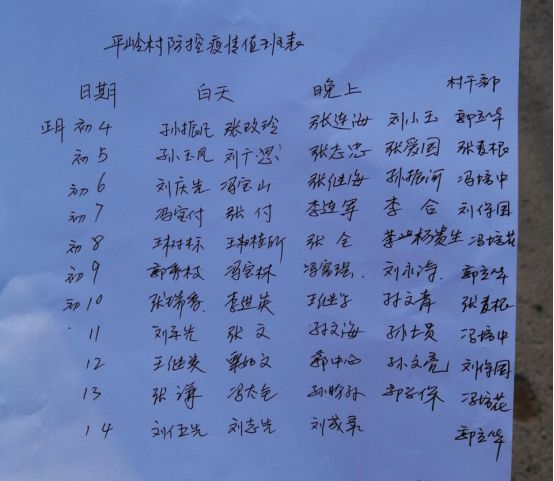 平岭村防控疫情值班表
日期 白天 晚上 村干部
正月 初4 孙振凡 张改玲 张连海 刘小玉 郭立华
初5 孙玉凤 刘广恩 张志忠 张爱国 张麦根
初6 刘庆先 冯宝山 张继海 孙振河 冯培中
初7 冯宝付 张付 李连军 李合 刘保国
初8 张全 杨贵生 冯培花
初9 郭秀枝 冯宝林 冯富强 刘永涛 郭立华
初10 张瑞香 李进英 王继学 孙文青 张麦根
11 刘军先 张文 孙文海 孙士员 冯培中
12 王继英 郭中心 孙文亮 刘保国
13 张谦 冯大仓 郭学保 冯培花
14 刘伍先 刘志先 刘成军 郭立华